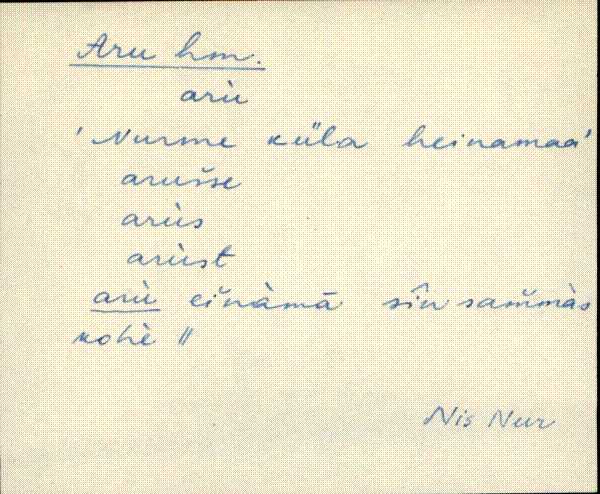 Aru hm.
arù
'Nurme küla heinamaa'
arušse
arùs
arùst
arù eĭnàmā sîn sam̆màs
kohè ||
Nis Nur